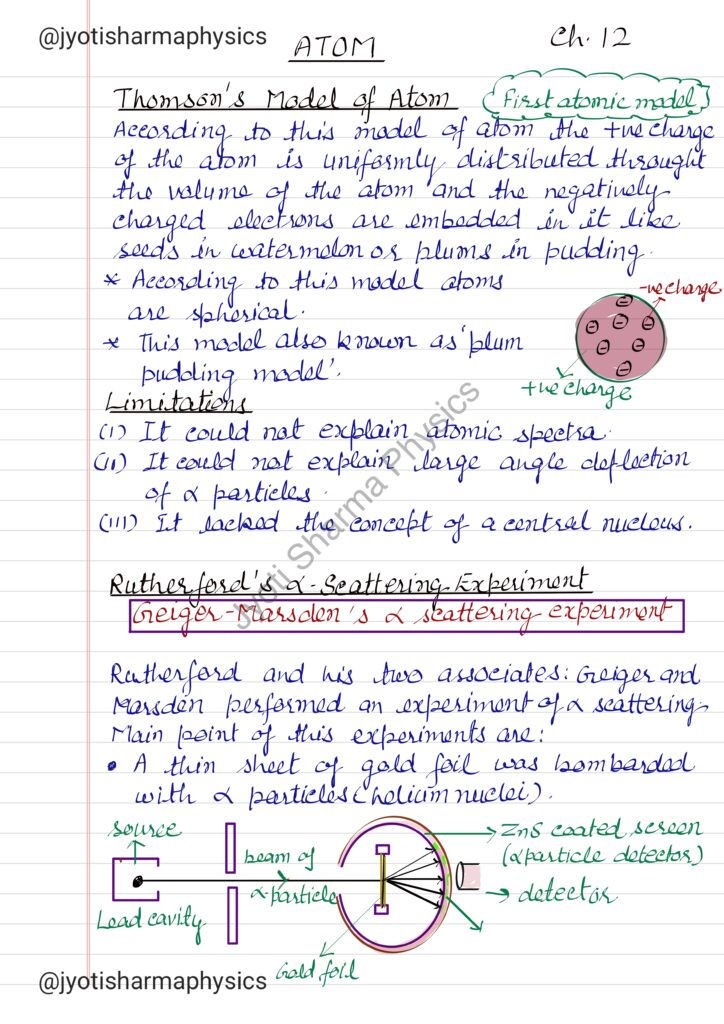 @jyotisharmaphysics
ATOM
Ch. 12
Thomson's Model of Atom
(First atomic model)
According to this model of atom the +ve charge
of the atom is uniformly distributed throught
the volume of the atom and the negatively
charged electrons are embedded in it like
seeds in watermelon or plums in pudding.
* According to this model atoms
are spherical.
* This model also known as 'plum
pudding model'.
-ve charge
+ve charge
Limitations
(i) It could not explain atomic spectra.
(ii) It could not explain large angle deflection
of α particles.
(iii) It lacked the concept of a central nucleus.
Jyoti Sharma Physics
Rutherford's α-Scattering Experiment
Geiger-Marsden's α scattering experiment
Rutherford and his two associates: Greiger and
Marsden performed an experiment of α scattering.
Main point of this experiments are:
• A thin sheet of gold foil was bombarded
with α particles (helium nuclei).
source
Lead cavity
beam of
α-particle
Gold foil
ZnS coated screen
(α particle detector)
detector
@jyotisharmaphysics